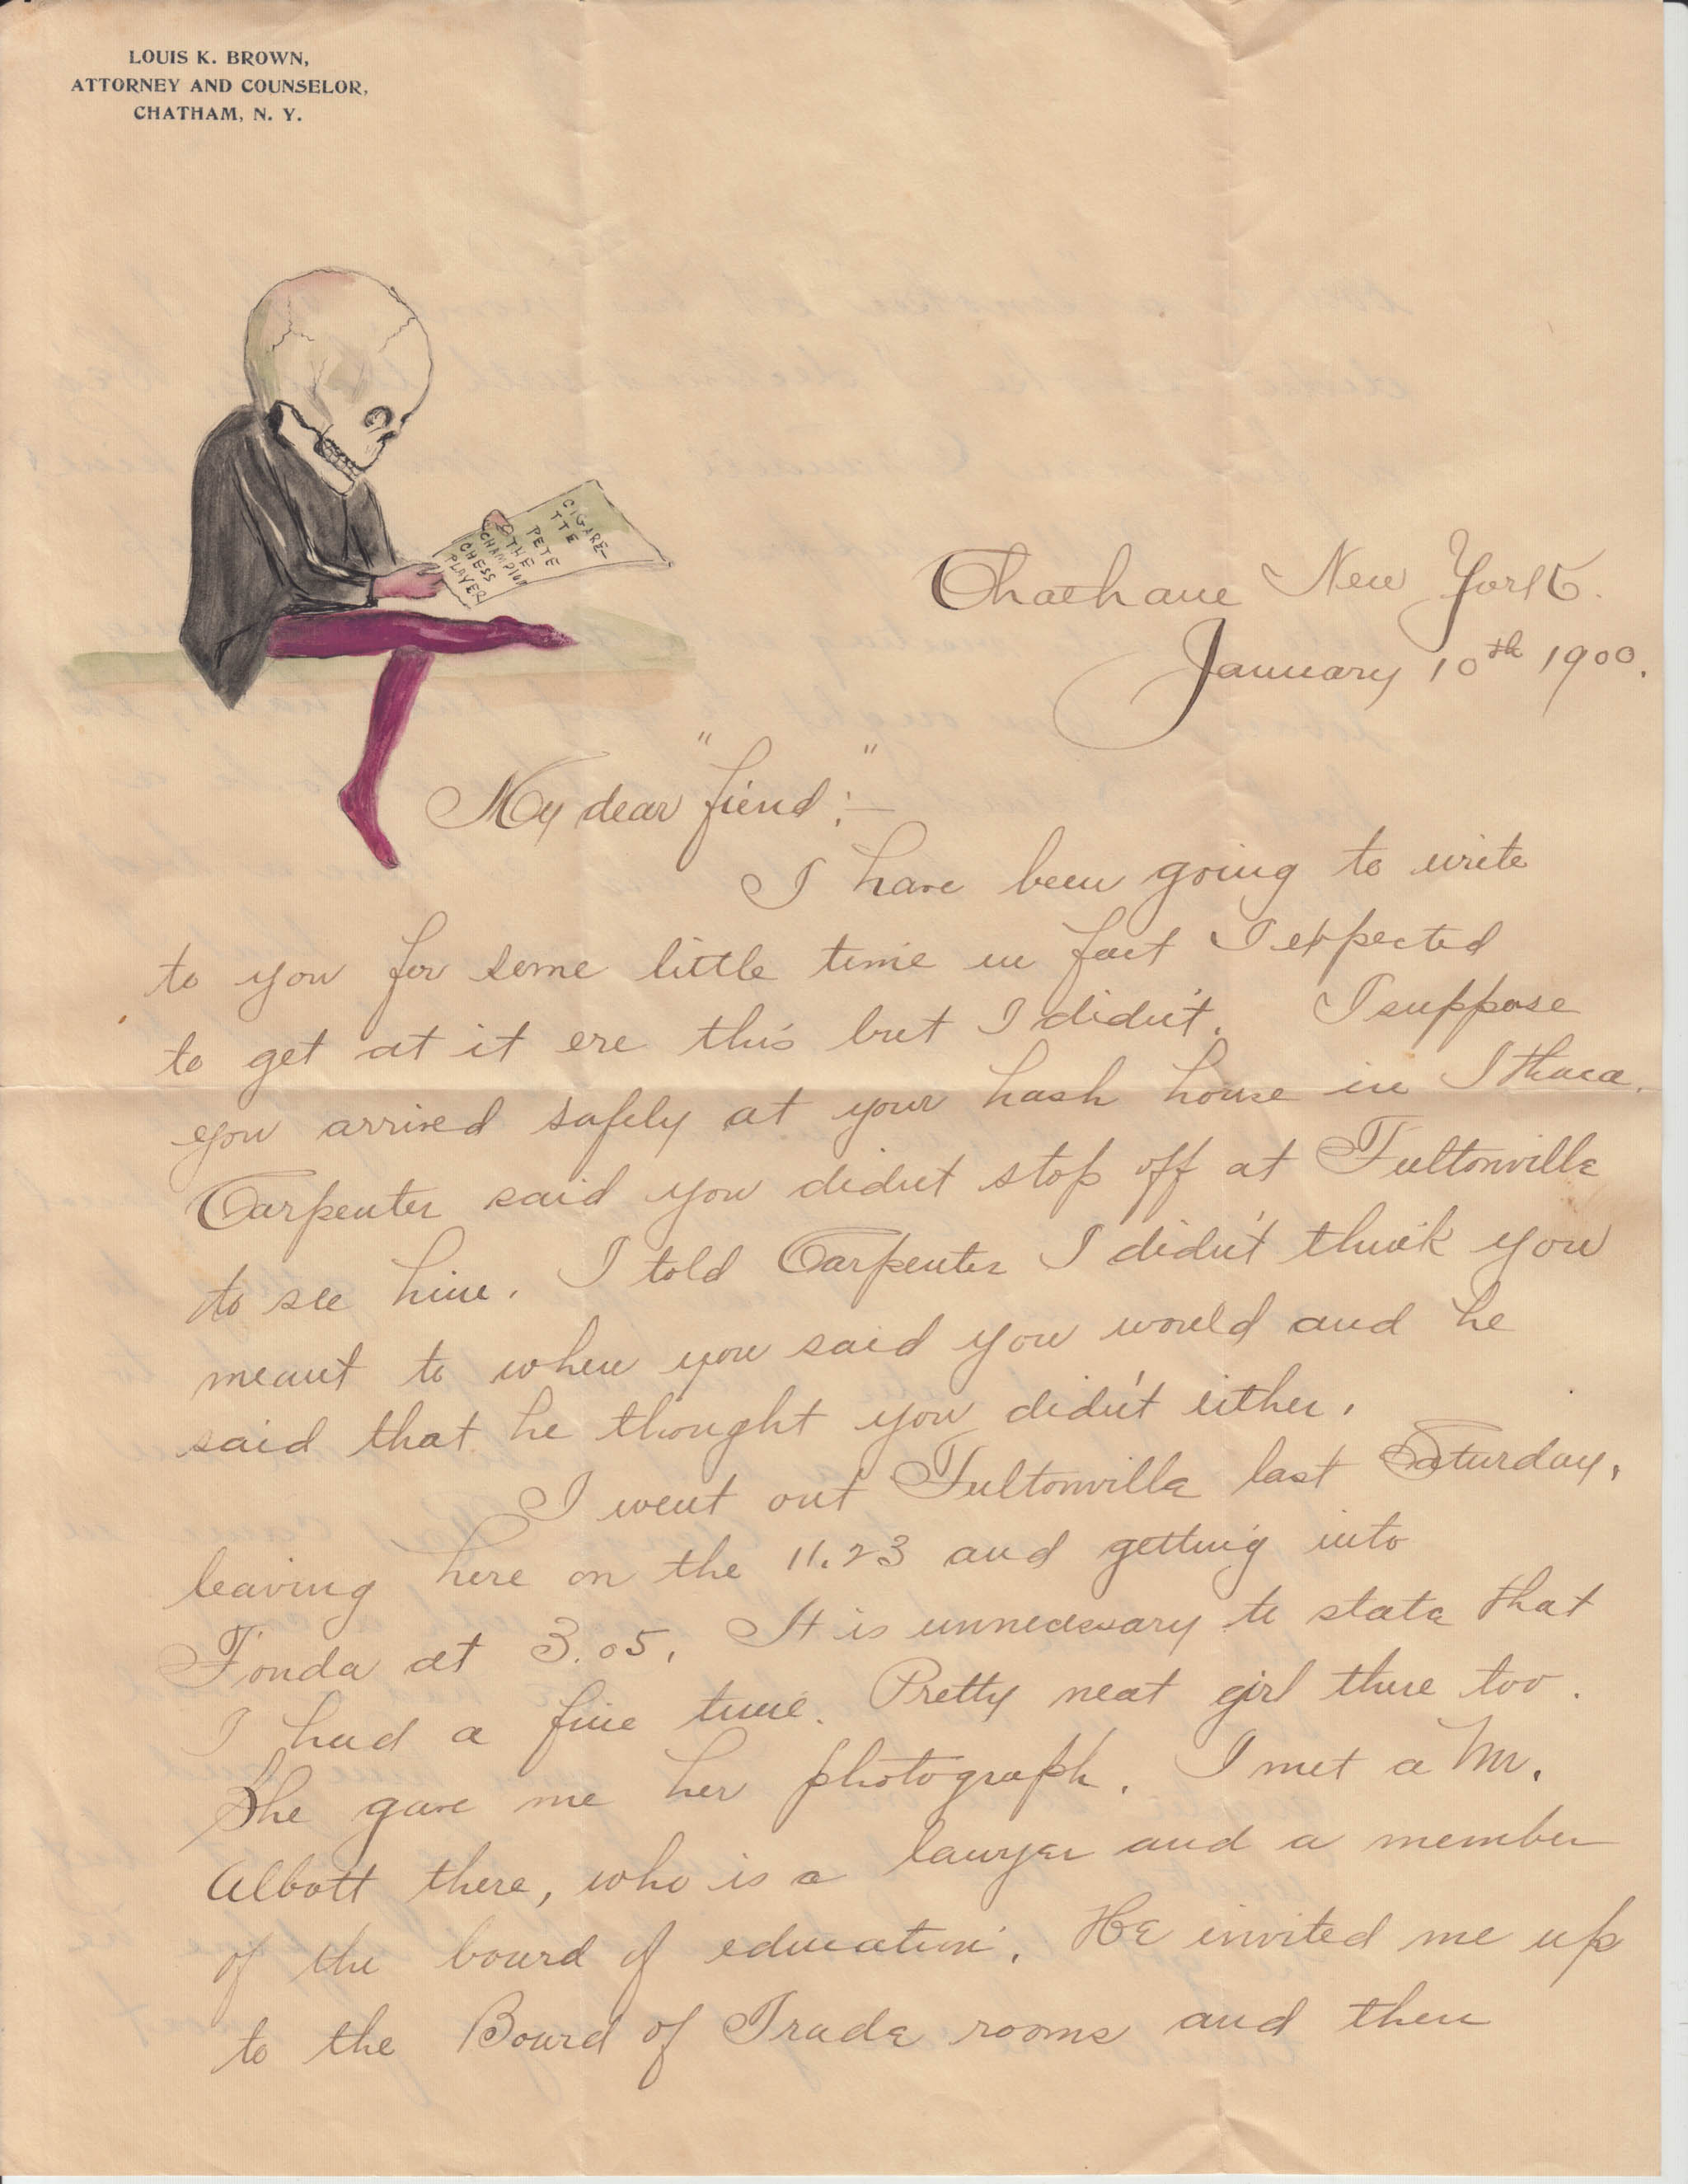 LOUIS K. BROWN,
ATTORNEY AND COUNSELOR,
CHATHAM, N. Y.
CIGARE-
TTE
PETE
THE
CHAMPION
CHESS
PLAYER
Chatham New York.
January 10th 1900.
My dear "fiend":—
I have been going to write
to you for some little time in fact I expected
to get at it ere this but I didn't. I suppose
you arrived safely at your hash house in Ithaca.
Carpenter said you didnt stop off at Fultonville
to see him. I told Carpenter I didn't think you
meant to when you said you would and he
said that he thought you didn't either.
I went out Fultonville last Saturday,
leaving here on the 11.23 and getting into
Fonda at 3.05. It is unnecessary to state that
I had a fine time. Pretty neat girl there too.
She gave me her photograph. I met a Mr.
Albott there, who is a lawyer and a member
of the board of education. He invited me up
to the Board of Trade rooms and then